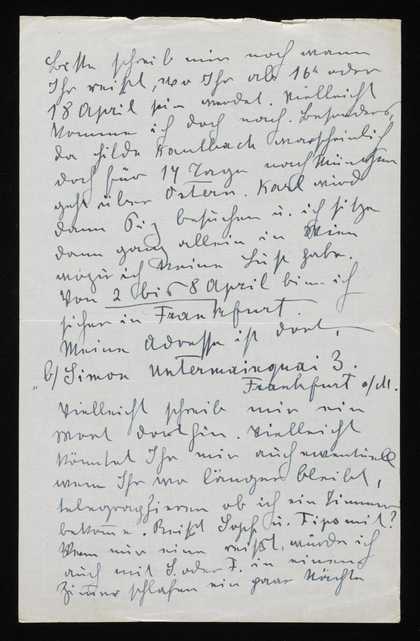 Bitte schreib mir noch wann
Ihr reist, wo Ihr ab 16ten oder
18 April sein werdet. Vielleicht
komme ich doch nach. Besonders,
da Hilde Kaulbach warscheinlich
doch für 14 Tage nach München
geht über Ostern. Karl wird
dann besuchen u. ich sitze
dann ganz allein in Wien
wozu ich keine Lust habe.
Von 2 bis 8 April bin ich
sicher in Frankfurt.
Meine Adresse ist dort,
b/ Simon Untermainquai 3.
Frankfurt a/M.
Vielleicht schreib mir ein
Wort dorthin. Vielleicht
könntet Ihr mir auch eventuell
wenn Ihr wo länger bleibt,
telegraphieren ob ich ein Zimmer
bekomme. Reist u. mit?
Wenn nur eine reist, würde ich
auch mit S. oder F. in einem
Zimmer schlafen ein paar Nächte